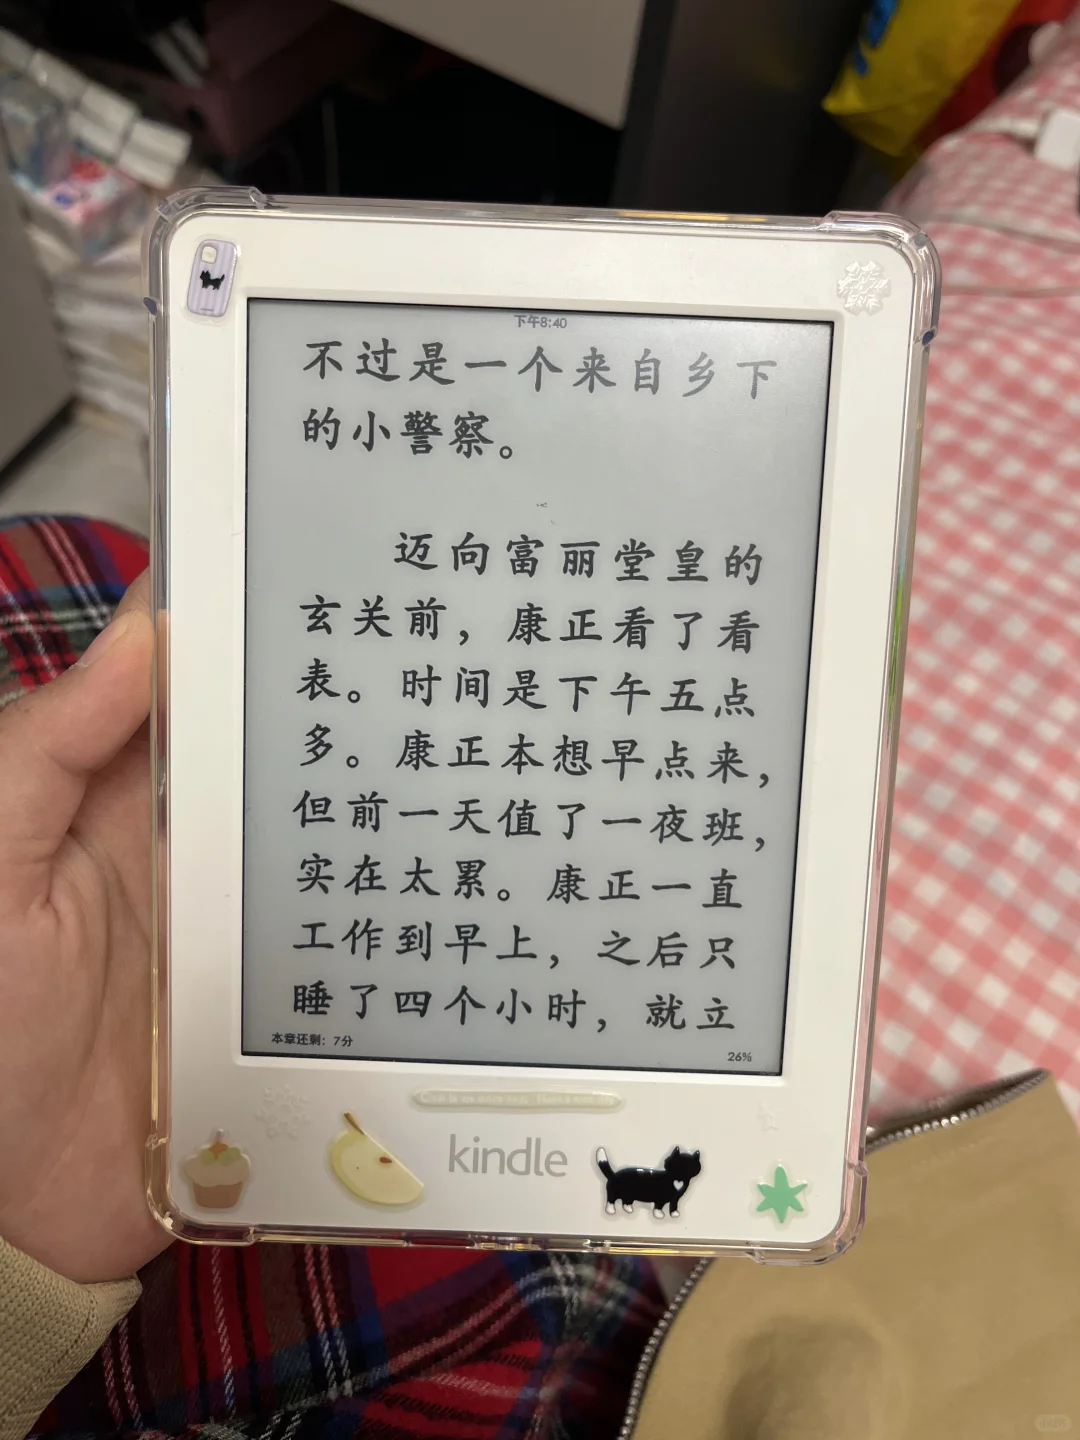 下午8:40
不过是一个来自乡下
的小警察。
迈向富丽堂皇的
玄关前，康正看了看
表。时间是下午五点
多。康正本想早点来，
但前一天值了一夜班，
实在太累。康正一直
工作到早上，之后只
睡了四个小时，就立
本章还剩：7分
26%
kindle